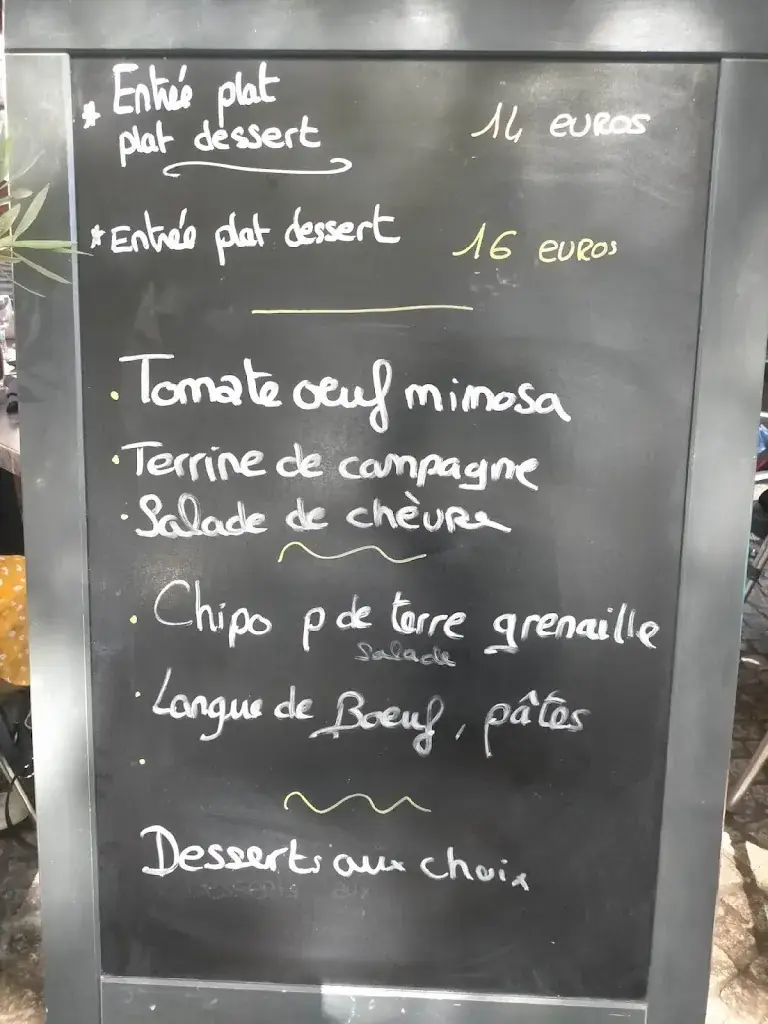 * Entrée plat
plat dessert
14 EUROS
* Entrée plat dessert
16 EUROS
· Tomate oeuf mimosa
· Terrine de campagne
· Salade de chèvre
· Chipo p de terre grenaille
salade
· Langue de Boeuf, pâtes
·
Desserts aux choix